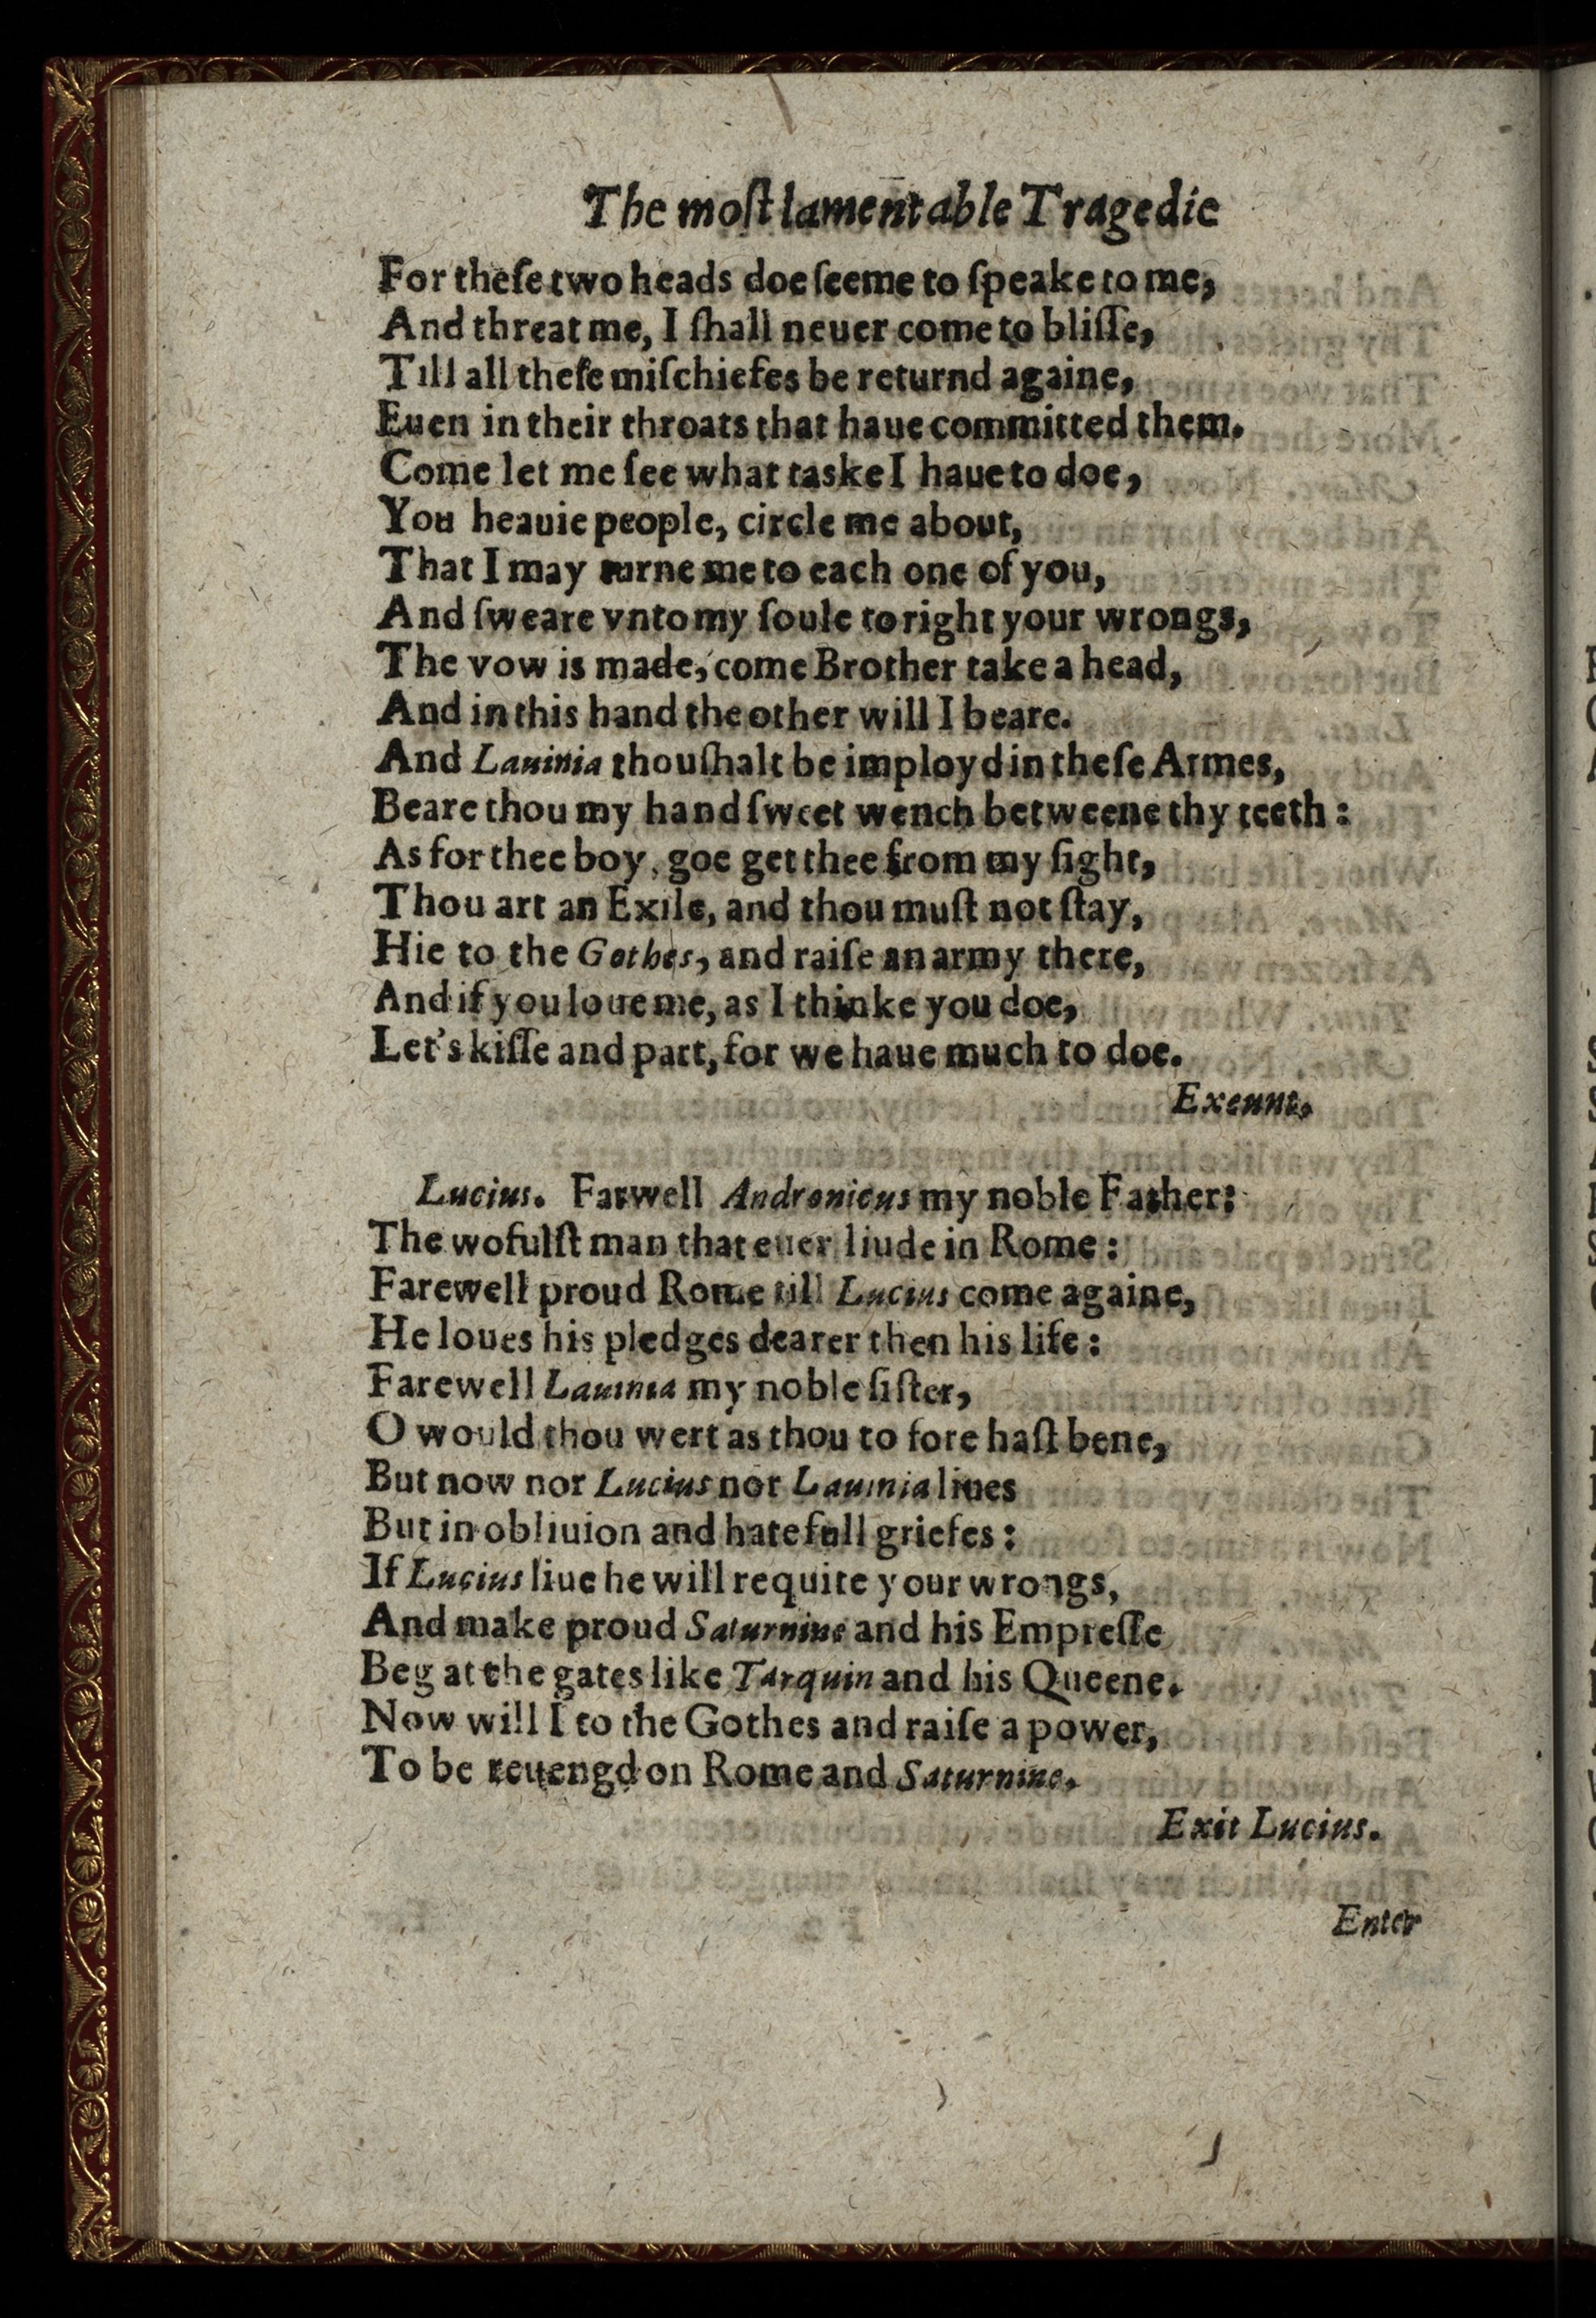 The moſt lamentable Tragedie
For theſe two heads doe ſeeme to ſpeake to me,
And threat me, I ſhall neuer come to bliſſe,
Till all theſe miſchiefes be returnd againe,
Euen in their throats that haue committed them.
Come let me ſee what taske I haue to doe,
You heauie people, circle me about,
That I may turne me to each one of you,
And ſweare vnto my ſoule to right your wrongs,
The vow is made, come Brother take a head,
And in this hand the other will I beare.
And Lauinia thou ſhalt be imployd in theſe Armes,
Beare thou my hand ſweet wench betweene thy teeth:
As for thee boy, goe get thee from my ſight,
Thou art an Exile, and thou muſt not ſtay,
Hie to the Gothes, and raiſe an army there,
And if you loue me, as I thinke you doe,
Let's kiſſe and part, for we haue much to doe.
Exeunt.
Lucius. Farwell Andronicus my noble Father:
The wofulſt man that euer liude in Rome:
Farewell proud Rome till Lucius come againe,
He loues his pledges dearer then his life:
Farewell Lauinia my noble ſiſter,
O would thou wert as thou to fore haſt bene,
But now nor Lucius nor Lauinia liues
But in obliuion and hatefull griefes:
If Lucius liue he will requite your wrongs,
And make proud Saturnine and his Empreſſe
Beg at the gates like Tarquin and his Queene.
Now will I to the Gothes and raiſe a power,
To be reuengd on Rome and Saturnine.
Exit Lucius.
Enter